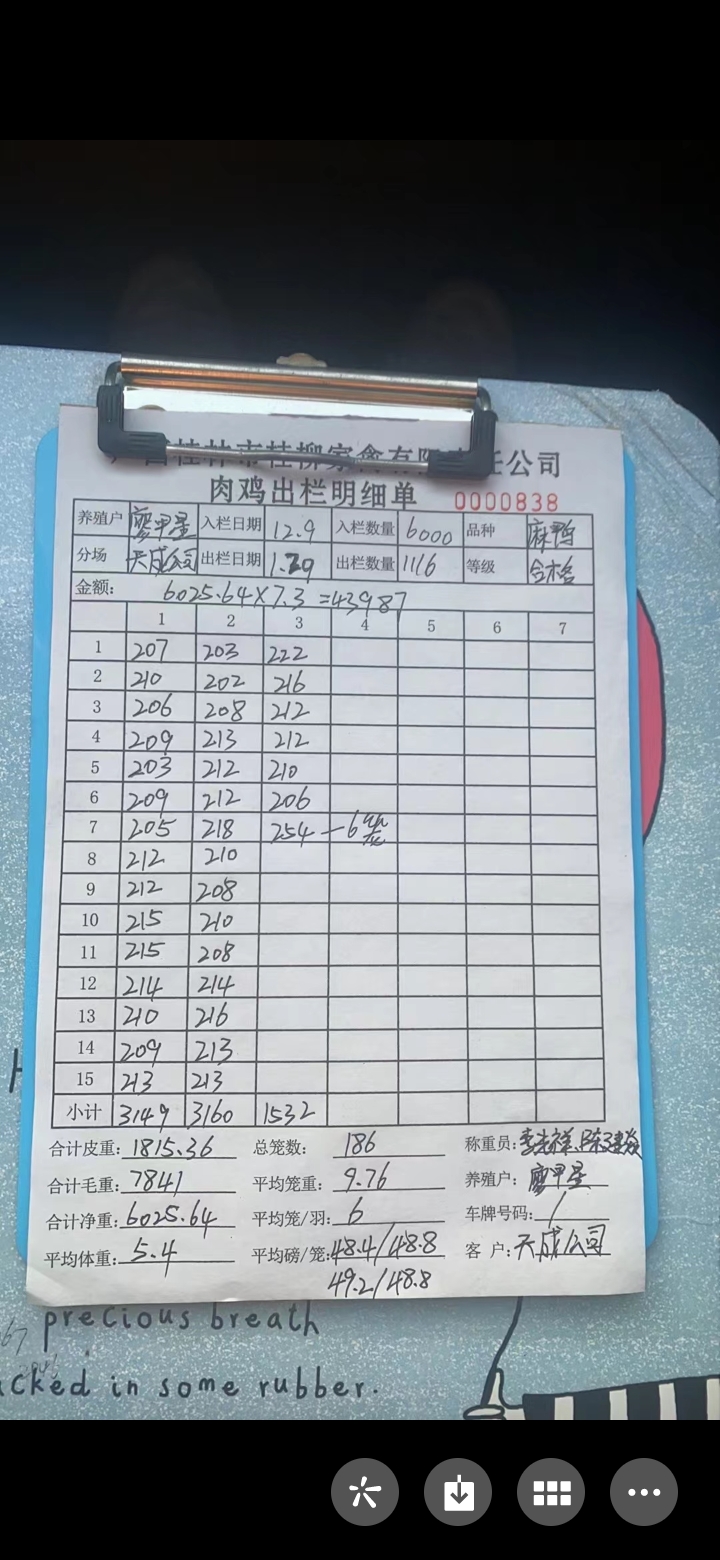 桂林市桂柳家禽有限责任公司
肉鸡出栏明细单 0000838
养殖户 廖甲星 入栏日期 12.9 入栏数量 6000 品种 麻鸭
分场 天成公司 出栏日期 1.29 出栏数量 1116 等级 合格
金额: 6025.64×7.3=43987
1 2 3 4 5 6 7
1 207 203 222
2 210 202 216
3 206 208 212
4 209 213 212
5 203 212 210
6 209 212 206
7 205 218 254 一6笼
8 212 210
9 212 208
10 215 210
11 215 208
12 214 214
13 210 216
14 209 213
15 213 213
小计 3149 3160 1532
合计皮重: 1815.36 总笼数: 186 称重员:
合计毛重: 7841 平均笼重: 9.76 养殖户: 廖甲星
合计净重: 6025.64 平均笼/羽: 6 车牌号码: /
平均体重: 5.4 平均磅/笼: 48.4/48.8 客户: 天成公司
49.2/48.8
precious breath
cked in some rubber.